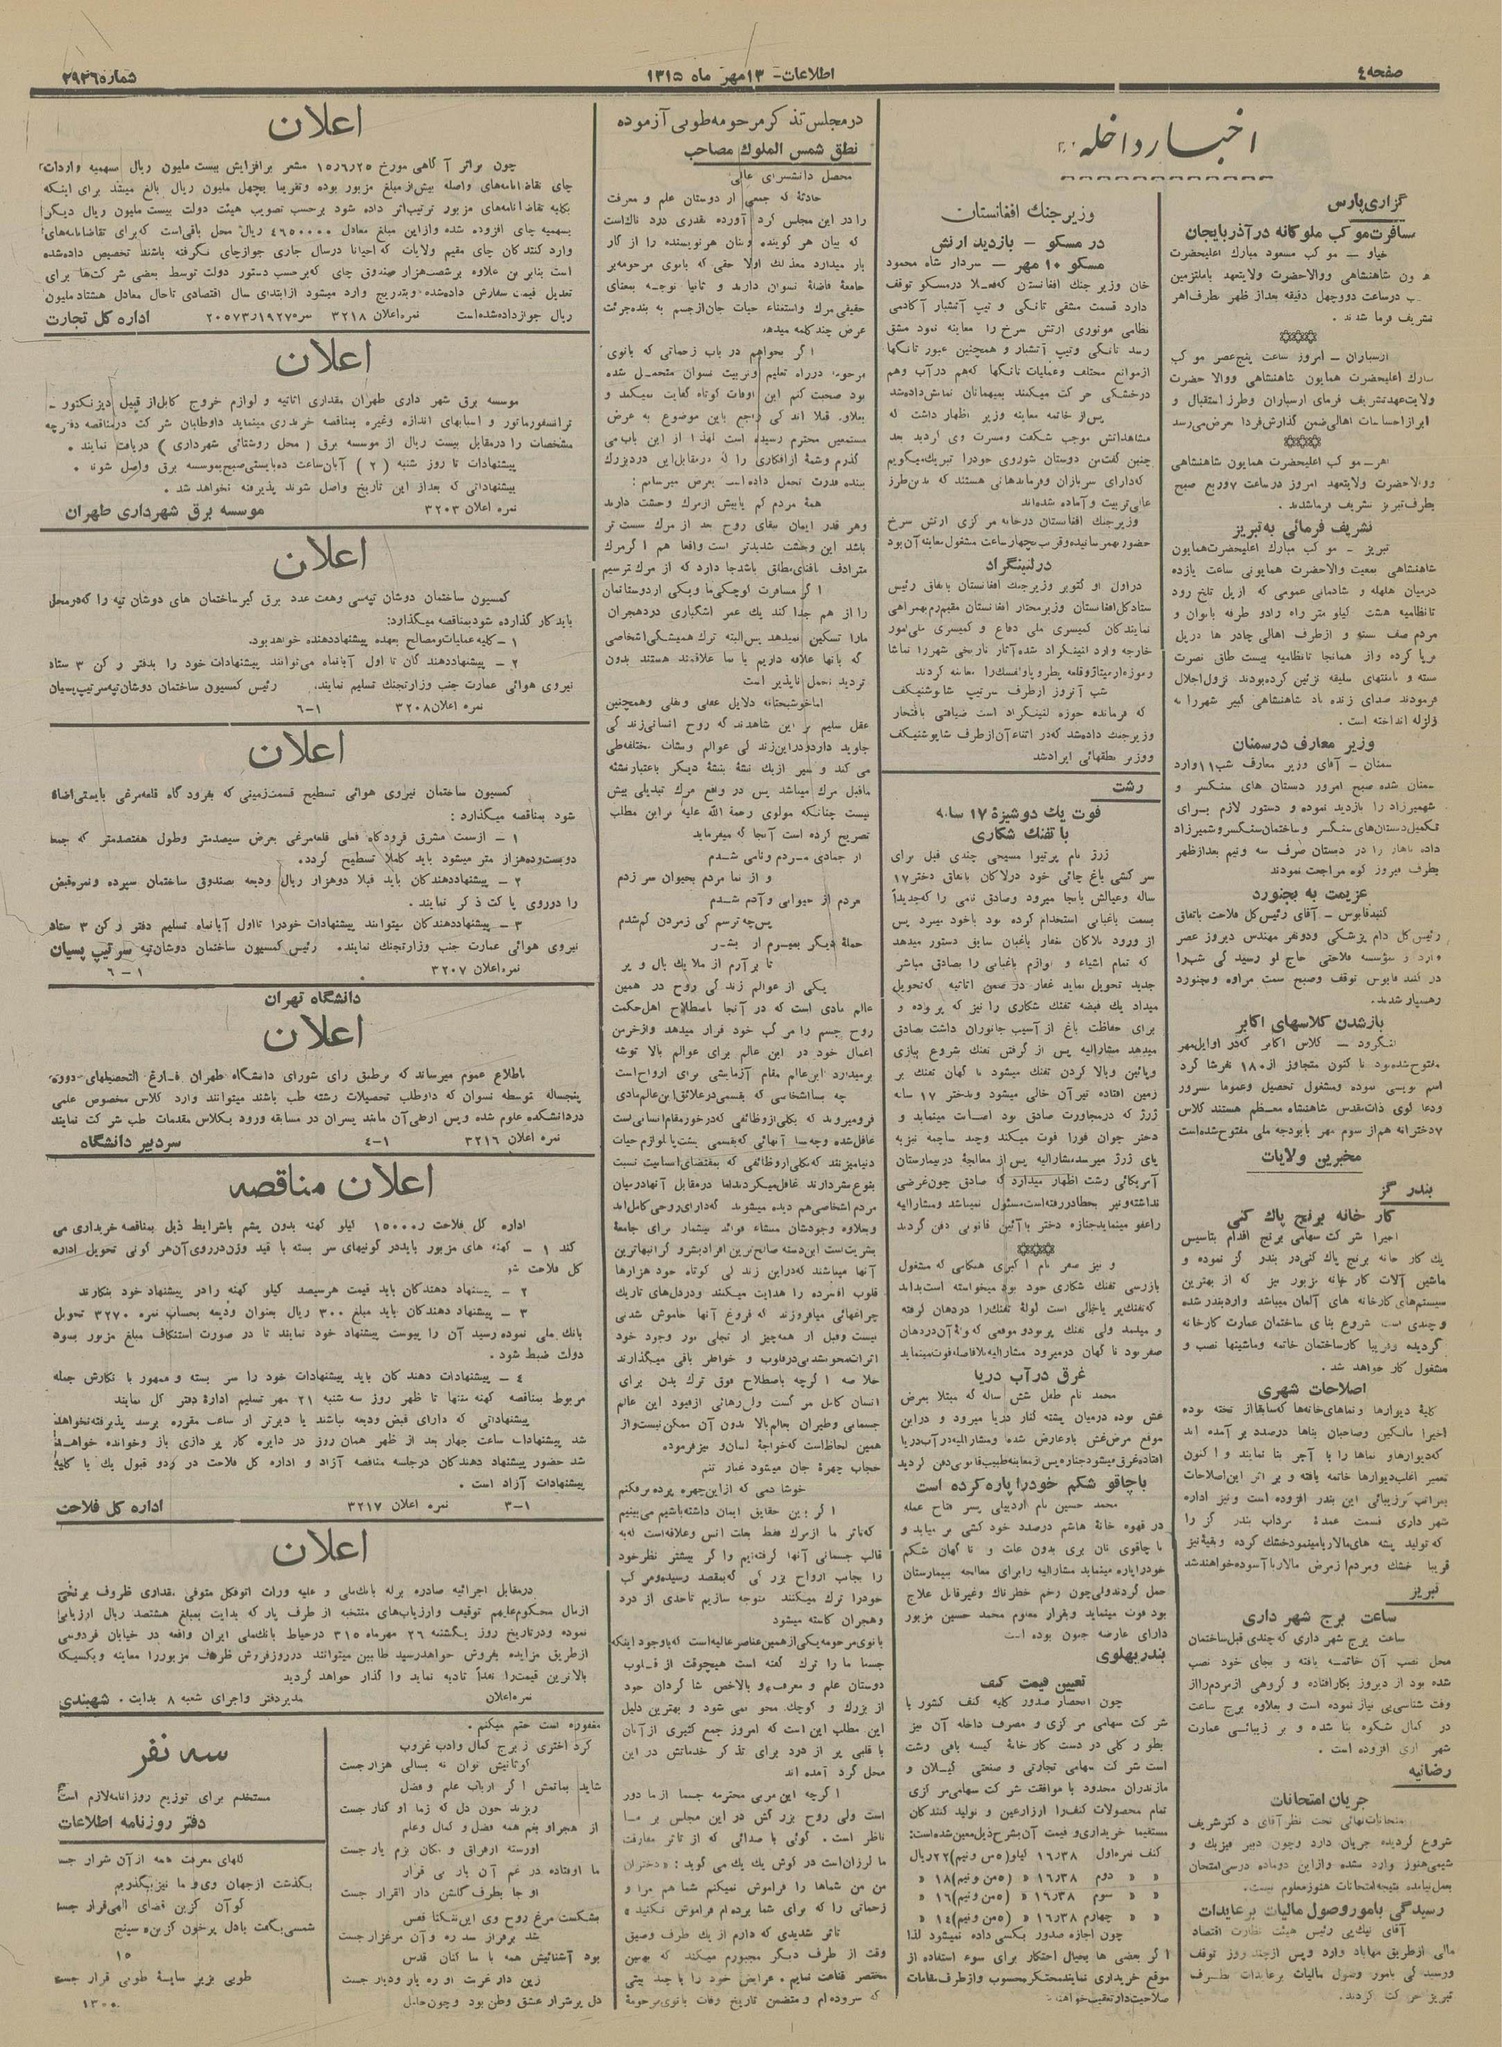 صفحه ٤
اطلاعات - ١٣ مهر ماه ١٣١٥
شماره ٢٩٣٦
اخبار داخله
گزاری پارس
مسافرت موکب ملوکانه در آذربایجان
خیاو - موکب مسعود مبارك اعلیحضرت
شاهنشاهی ووالاحضرت ولایتعهد باملتزمین
در ساعت دووچهل دقیقه بعداز ظهر بطرف اهر
تشریف فرما شدند .
ارسباران - امروز ساعت پنج عصر موکب
مبارك اعلیحضرت همایون شاهنشاهی ووالا حضرت
ولایتعهد تشریف فرمای ارسباران وطرز استقبال و
ابراز احساسات اهالی ضمن گذارش فردا عرض می رسد
اهر - موکب اعلیحضرت همایون شاهنشاهی
ووالاحضرت ولایتعهد امروز در ساعت ٧ وربع صبح
بطرف تبریز تشریف فرما شدند .
تشریف فرمائی به تبریز
تبریز - موکب مبارك اعلیحضرت همایون
شاهنشاهی بمعیت والاحضرت همایونی ساعت یازده
درمیان هلهله و شادمانی عمومی که ازپل تلخه رود
تا نظامیه هشت کیلو متر راه رادو طرفه بانوان و
مردم صف بسته و ازطرف اهالی چادر ها در پل
برپا کرده واز همانجا تا نظامیه بیست طاق نصرت
بسته و بامنتهای سلیقه تزئین کرده بودند نزول اجلال
فرمودند صدای زنده باد شاهنشاهی کبیر شهر را به
زلزله انداخته است .
وزیر معارف در سمنان
سمنان - آقای وزیر معارف شب ١١ وارد
سمنان شده صبح امروز دبستان های سنگسر و
شهمیرزاد را بازدید نموده و دستور لازم برای
تکمیل دبستان های سنگسر و ساختمان سنگسر و شهمیرزاد
داده ناهار را در دبستان صرف سه ونیم بعدازظهر
بطرف فیروز کوه مراجعت نمودند
عزیمت به بجنورد
گنبد قابوس - آقای رئیس کل فلاحت باتفاق
رئیس کل دام پزشکی ودونفر مهندس دیروز عصر
وارد از مؤسسه فلاحتی حاج لر رسیدگی شب را
در گنبد قابوس توقف وصبح سمت مراوه وبجنورد
رهسپار شدند .
بازشدن کلاسهای اکابر
لنگرود - کلاس اکابر که در اوایل مهر
مفتوح شده بود تا کنون متجاوز از ١٨٠ نفر شاگرد
اسم نویسی نموده ومشغول تحصیل وعموما مسرور
ودعا گوی ذات مقدس شاهنشاه معظم هستند کلاس
٧ دخترانه هم از سوم مهر با بودجه ملی مفتوح شده است
مخبرین ولایات
بندر گز
کار خانه برنج پاك کنی
اخیرا شرکت سهامی برنج اقدام بتأسیس
یك کار خانه برنج پاك کنی در بندر گز نموده و
ماشین آلات کار خانه مزبور نیز که از بهترین
سیستم های کارخانه های آلمان میباشد وارد بندر شده
وچندی است شروع بنای ساختمان عمارت کارخانه
گردیده وتقریبا کار ساختمان خاتمه وماشینها نصب و
مشغول کار خواهد شد .
اصلاحات شهری
کلیهٔ دیوارها ونماهای خانه ها که سابقا از تخته بوده
اخیرا مالکین وصاحبان بناها درصدد بر آمده اند
که دیوارها و نماها را با آجر بنا نمایند و اکنون
تعمیر اغلب دیوارها خاتمه یافته و بر اثر این اصلاحات
بمراتب بر زیبائی این بندر افزوده است و نیز اداره
شهر داری قسمت عمدهٔ مرداب بندر گز را
که تولید پشه های مالاریا مینمود خشك کرده وبقیهٔ نیز
قریبا خشك ومردم از مرض مالاریا آسوده خواهند شد
تبریز
ساعت برج شهر داری
ساعت برج شهر داری که چندی قبل ساختمان
محل نصب آن خاتمه یافته و بجای خود نصب
شده بود از دیروز بکار افتاده و گروهی از مردم را از
وقت شناسی بی نیاز نموده است و بعلاوه برج ساعت
در کمال شکوه بنا شده و بر زیبائی عمارت
شهرداری افزوده است .
رضائیه
جریان امتحانات
امتحانات نهائی تحت نظر آقای دکتر شریف
شروع گردیده جریان دارد وچون دبیر فیزیك و
شیمی هنوز وارد نشده وازاین دوماده درسی امتحان
بعمل نیامده نتیجه امتحانات هنوز معلوم نیست .
رسیدگی بامور وصول مالیات بر عایدات
آقای نیك پی رئیس هیئت نظارت اقتصاد
مالی ازطریق مهاباد وارد وپس ازچند روز توقف
ورسیدگی بامور وصول مالیات بر عایدات بطرف
تبریز حرکت کردند .
وزیر جنك افغانستان
در مسکو - بازدید ارتش
مسکو ١٠ مهر - سردار شاه محمود
خان وزیر جنك افغانستان که فعلا درمسکو توقف
دارد قسمت مشقی تانکی و تیپ آتشبار آکادمی
نظامی موتوری ارتش سرخ را معاینه نمود مشق
رسد تانکی وتیپ آتشبار و همچنین عبور تانکها
ازموانع مختلف وعملیات تانکها که هم در آب وهم
درخشکی حرکت میکنند بمیهمانان نمایش داده شد
پس از خاتمه معاینه وزیر اظهار داشت که
مشاهداتش موجب شگفت ومسرت وی گردید بعد
چنین گفت من دوستان شوروی خودرا تبریك میگویم
که دارای سربازان وفرماندهانی هستند که بدین طرز
عالی تربیت و آماده شده اند
وزیر جنك افغانستان درخانه مرکزی ارتش سرخ
حضور بهم رسانیده وقریب چهار ساعت مشغول معاینه آن بود
در لنینگراد
دراول اکتوبر وزیر جنك افغانستان باتفاق رئیس
ستاد کل افغانستان وزیر مختار افغانستان مقیم رم بهمراهی
نمایندگان کمیسری ملی دفاع و کمیسری ملی امور
خارجه وارد لنینگراد شده آثار تاریخی شهر را تماشا
وموزه ارمیتاژ وقلعه پطروپاولفسك را معاینه کردند
شب آنروز ازطرف سرتیپ شاپوشنیکف
که فرمانده حوزه لنینگراد است ضیافتی بافتخار
وزیر جنك داده شد که در اثناء آن ازطرف شاپوشنیکف
ووزیر نطقهائی ایراد شد
رشت
فوت یك دوشیزهٔ ١٧ ساله
با تفنك شکاری
ژرژ نام پرتیوا مسیحی چندی قبل برای
سر کشی باغ چائی خود در لاکان باتفاق دختر ١٧
ساله وعیالش بآنجا میرود وصادق نامی را که جدیداً
بسمت باغبانی استخدام کرده بود باخود میبرد پس
از ورود بلاکان بغفار باغبان سابق دستور میدهد
که تمام اشیاء و لوازم باغبانی را بصادق مباشر
جدید تحویل نماید غفار در ضمن اثاثیه که تحویل
میداد یك قبضه تفنك شکاری را نیز که پر بوده و
برای حفاظت باغ از آسیب جانوران داشت بصادق
میدهد مشارالیه پس از گرفتن تفنك شروع ببازی
وپائین وبالا کردن تفنك میشود ناگهان تفنك بر
زمین افتاده تیر آن خالی میشود وبدختر ١٧ ساله
ژرژ که درمجاورت صادق بود اصابت مینماید و
دختر جوان فوراً فوت میکند وچند ساچمه نیز به
پای ژرژ میرسد مشارالیه پس از معالجهٔ در بیمارستان
آمریکائی رشت اظهار میدارد که صادق چون غرضی
نداشته وتیر بخطا در رفته است مسئول نمیباشد ومشارالیه
را عفو مینماید جنازه دختر با آئین قانونی دفن گردید
و نیز صفر نام اکبری هنگامی که مشغول
بازرسی تفنك شکاری خود بود میخواسته است بداند
که تفنك پر یا خالی است لولهٔ تفنك را دردهان گرفته
و میدمد ولی تفنك پر بوده و موقعی که لولهٔ آن دردهان
صفر بود ناگهان درمیرود مشارالیه بلافاصله فوت مینماید
غرق در آب دریا
محمد نام طفل شش ساله که مبتلا بمرض
غش بوده درمیان پشته کنار دریا میرود و دراین
موقع مرض غش باو عارض شده ومشارالیه در آب دریا
افتاده غرق میشود جنازه پس از معاینه طبیب قانونی دفن گردید
با چاقو شکم خودرا پاره کرده است
محمد حسین نام اردبیلی پسر فتاح عمله
در قهوه خانهٔ هاشم درصدد خود کشی بر میاید و
با چاقوی نان بری بدون علت و ناگهان شکم
خودرا پاره مینماید مشارالیه را برای معالجه بیمارستان
حمل کردند ولی چون زخم خطرناك وغیر قابل علاج
بود فوت مینماید وبقرار معلوم محمد حسین مزبور
دارای عارضه جنون بوده است
بندر پهلوی
تعیین قیمت کنف
چون انحصار صدور کلیه کنف کشور با
شرکت سهامی مرکزی و مصرف داخله آن نیز
بطور کلی در دست کار خانهٔ کیسه بافی رشت
است شرکت سهامی تجارتی و صنعتی گیلان و
مازندران محدود با موافقت شرکت سهامی مرکزی
تمام محصولات کنف را اززارعین و تولید کنندگان
مستقیما خریداری و قیمت آن بشرح ذیل معین شده است:
کنف نمره اول ١٦ر٣٨ کیلو (٥ من ونیم) ٢٢ ریال
« « دوم ١٦ر٣٨ « (٥ من ونیم) ١٨ «
« « سوم ١٦ر٣٨ « (٥ من ونیم) ١٦ «
« « چهارم ١٦ر٣٨ « (٥ من ونیم) ١٤ «
چون اجازه صدور بکسی داده نمیشود لذا
اگر بعضی ها بخیال احتکار برای سوء استفاده از
موقع خریداری نمایند محتکر محسوب وازطرف مقامات
صلاحیت دار تعقیب خواهند
در مجلس تذکر مرحومه طوبی آزموده
نطق شمس الملوك مصاحب
محصل دانشسرای عالی
حادثهٔ که جمعی از دوستان علم و معرفت
را در این مجلس گرد آورده بقدری درد ناك است
که بیان هر گوینده وبنان هر نویسنده را از کار
باز میدارد معذلك اولا حقی که بانوی مرحومه بر
جامعهٔ فاضلهٔ نسوان دارند و ثانیا توجه بمعنای
حقیقی مرك واستغناء حیات جان ازجسم به بنده جرئت
عرض چند کلمه میدهد
اگر بخواهم در باب زحماتی که بانوی
مرحومه درراه تعلیم وتربیت نسوان متحمل شده
بود صحبت کنم این اوقات کوتاه کفایت نمیکند و
بعلاوه قبلا اندکی راجع باین موضوع به عرض
مستمعین محترم رسیده است لهذا از این باب می
گذرم وشمهٔ ازافکاری را که درمقابل این درد بزرك
ببنده قدرت تحمل داده است بعرض میرسانم :
همهٔ مردم کم یا بیش ازمرك وحشت دارند
وهر قدر ایمان ببقای روح بعد از مرك سست تر
باشد این وحشت شدیدتر است واقعا هم اگر مرك
مترادف بافنای مطلق باشد جا دارد که از مرك ترسیم
اگر مسافرت کوچکی ما ویکی ازدوستانمان
را از هم جدا کند یك عمر اشکباری درهجران
مارا تسکین نمیدهد پس البته ترك همیشگی اشخاصی
که بآنها علاقه داریم یا بما علاقمند هستند بدون
تردید تحمل ناپذیر است
اما خوشبختانه دلایل عقلی ونقلی وهمچنین
عقل سلیم بر این شاهدند که روح انسانی زندگی
جاوید دارد ودراین زندگی عوالم ونشآت مختلفه طی
می کند و سیر ازیك نشئهٔ بنشئهٔ دیگر باعتبار نشئه
ماقبل مرك میباشد پس در واقع مرك تبدیلی بیش
نیست چنانکه مولوی رحمة الله علیه براین مطلب
تصریح کرده است آنجا که میفرماید
از جمادی مردم ونامی شدم
و از نما مردم بحیوان سر زدم
مردم از حیوانی و آدم شدم
پس چه ترسم کی زمردن کم شدم
حملهٔ دیگر بمیرم از بشر
تا بر آرم از ملایك بال و پر
یکی از عوالم زندگی روح در همین
عالم مادی است که در آنجا باصطلاح اهل حکمت
روح جسم را مرکب خود قرار میدهد وازخرمن
اعمال خود در این عالم برای عوالم بالا توشه
برمیدارد این عالم مقام آزمایشی برای ارواح است
چه بسا اشخاصی که بقسمی درعلائق این عالم مادی
فرو میروند که بکلی ازوظائفی که درخور مقام انسانی است
غافل شده وچه بسا آنهائی که بقسمی پشت پا بلوازم حیات
دنیا میزنند که بکلی ازوظائفی که بمقتضای انسانیت نسبت
بنوع بشر دارند غافل میگردند اما درمقابل آنها درمیان
مردم اشخاصی هم دیده میشوند که دارای روحی کامل اند
وبعلاوه وجودشان منشاء فوائد بیشمار برای جامعهٔ
بشریت است این دسته صالح ترین افراد بشر و گرانبها ترین
آنها میباشند که دراین زندگی کوتاه خود هزارها
قلوب افسرده را هدایت میکنند ودردل های تاریك
چراغهائی میافروزند که فروغ آنها خاموش شدنی
نیست وقبل از همه چیز از تجلی نور وجود خود
اثرات محو نشدنی درقلوب و خواطر باقی میگذارند
خلاصه اگرچه باصطلاح فوق ترك بدن برای
انسان کامل مرگست ولی رهائی ازقیود این عالم
جسمانی وطیران بعالم بالا بدون آن ممکن نیست واز
همین لحاظ است که خواجهٔ لسان ونیز فرموده
حجاب چهرهٔ جان میشود غبار تنم
خوشا دمی که ازاین چهره پرده برفکنم
اگر باین حقایق ایمان داشته باشیم می بینیم
که تأثر ما ازمرك فقط بعلت انس وعلاقه است که به
قالب جسمانی آنها گرفته ایم واگر بیشتر نظر خود
را بجانب ارواح بزرگی که بمقصد رسیده ومرکب
خودرا ترك میکنند متوجه سازیم تاحدی از درد
وهجران کاسته میشود
بانوی مرحومه یکی ازهمین عناصر عالیه است که باوجود اینکه
جسما ما را ترك گفته است هیچوقت از قلوب
دوستان علم و معرفت و بالاخص شاگردان خود
از بزرك و کوچك محو نمی شود و بهترین دلیل
این مطلب این است که امروز جمع کثیری ازآنان
با قلبی پر از درد برای تذکر خدماتش در این
محل گرد آمده اند
اگرچه این مربی محترمه جسما ازما دور
است ولی روح بزرگش در این مجلس بر ما
ناظر است . گوئی با صدائی که از تأثر مفارقت
ما لرزان است در گوش یك یك می گوید : « دختران
من من شماها را فراموش نمیکنم شما هم مرا و
زحماتی را که برای شما برده ام فراموش نکنید »
تأثر شدیدی که دارم از یك طرف وضیق
وقت از طرف دیگر مجبورم میکند که بهمین
مختصر قناعت نمایم . عرایض خود را با چند بیتی
که سروده ام و متضمن تاریخ وفات بانوی مرحومهٔ
مغفوره است ختم میکنم .
کرد اختری ز برج کمال وادب غروب
کوتانیش توان نه بسالی هزار جست
شاید بماتمش اگر ارباب علم و فضل
ریزند خون دل که زما او کنار جست
از هجر او بغم همه فضل و کمال وعلم
اورسته ازفراق و مکان بزم یار جست
ما اوفتاده در غم آن یار بی قرار
او جا بطرف گلشن دار القرار جست
بشکست مرغ روح وی این تنگنا قفس
شد برفراز سدره وآن مرغزار جست
بود آشنائیش همه با ساکنان قدس
زین دار غربت او ره یار ودیار جست
دل پر شرار عشق وطن بود وچون خلیل
گلهای معرفت همه از آن شرار جست
بگذشت ازجهان وی و ما نیز بگذریم
کو آن کزین فضای الهی قرار جست
شمسی بگفت بادل پر خون کزین سپنج
١٥
طوبی بزیر سایهٔ طوبی قرار جست
١٣٠٠
اعلان
چون براثر آگاهی مورخ ١٥ر٦ر٢٥ مشعر برافزایش بیست ملیون ریال بسهمیه واردات
چای تقاضانامه های واصله بیش از مبلغ مزبور بوده وتقریبا بچهل ملیون ریال بالغ میشد برای اینکه
بکلیه تقاضانامه های مزبور ترتیب اثر داده شود برحسب تصویب هیئت دولت بیست ملیون ریال دیگر
بسهمیه چای افزوده شده وازاین مبلغ معادل ٤٦٥٠٠٠٠ ریال محل باقی است که برای تقاضانامه های
وارد کنندگان چای مقیم ولایات که احیانا درسال جاری جوازچای نگرفته باشند تخصیص داده شده
است بنابر این علاوه برشصت هزار صندوق چای که برحسب دستور دولت توسط بعضی شرکت ها برای
تعدیل قیمت سفارش داده شده وبتدریج وارد میشود ازابتدای سال اقتصادی تاحال معادل هشتاد ملیون
ریال جواز داده شده است نمره اعلان ٣٢١٨ اداره کل تجارت
اعلان
موسسه برق شهرداری طهران مقداری اثاثیه و لوازم خروج کابل از قبیل دیزنکتور -
ترانسفورماتور و اسبابهای اندازه وغیره بمناقصه خریداری مینماید داوطلبان شرکت درمناقصه دفترچه
مشخصات را درمقابل بیست ریال از موسسه برق ( محل روشنائی شهرداری ) دریافت نمایند .
پیشنهادات تا روز شنبه ( ٢ ) آبان ساعت ده بایستی صبح بموسسه برق واصل شوند .
پیشنهاداتی که بعداز این تاریخ واصل شوند پذیرفته نخواهد شد .
نمره اعلان ٣٢٠٣ موسسه برق شهرداری طهران
اعلان
کمسیون ساختمان دوشان تپه سی وهفت عدد برق گیر ساختمان های دوشان تپه را که درمحل
باید کار گذارده شود بمناقصه میگذارد:
١ - کلیه عملیات ومصالح بعهده پیشنهاد دهنده خواهد بود.
٢ - پیشنهاد دهندگان تا اول آبانماه می توانند پیشنهادات خود را بدفتر رکن ٣ ستاد
نیروی هوائی عمارت جنب وزارت جنك تسلیم نمایند. رئیس کمسیون ساختمان دوشان تپه سرتیپ پسیان
نمره اعلان ٣٢٠٨ ١-٦
اعلان
کمسیون ساختمان نیروی هوائی تسطیح قسمت زمینی که بفرودگاه قلعه مرغی بایستی اضافه
شود بمناقصه میگذارد :
١ - ازسمت مشرق فرودگاه فعلی قلعه مرغی بعرض سیصد متر وطول هفتصد متر که جمعا
دویست وده هزار متر میشود باید کاملا تسطیح گردد.
٢ - پیشنهاد دهندگان باید قبلا دوهزار ریال ودیعه بصندوق ساختمان سپرده ونمره قبض
را درروی پاکت ذکر نمایند .
٣ - پیشنهاد دهندگان میتوانند پیشنهادات خودرا تا اول آبانماه تسلیم دفتر رکن ٣ ستاد
نیروی هوائی عمارت جنب وزارت جنك نمایند. رئیس کمسیون ساختمان دوشان تپه سرتیپ پسیان
نمره اعلان ٣٢٠٧ ١-٦
دانشگاه تهران
اعلان
باطلاع عموم میرساند که برطبق رای شورای دانشگاه طهران فارغ التحصیلهای دوره
پنجساله توسطه نسوان که داوطلب تحصیلات رشته طب باشند میتوانند وارد کلاس مخصوص علمی
دردانشکده علوم شده وپس ازطی آن مانند پسران در مسابقه ورود بکلاس مقدمات طب شرکت نمایند
نمره اعلان ٣٢١٦ ١-٤ سردبیر دانشگاه
اعلان مناقصه
اداره کل فلاحت ١٥٠٠٠ کیلو کهنه بدون پشم باشرایط ذیل بمناقصه خریداری می
کند ١ - کهنه های مزبور باید در گونیهای سر بسته با قید وزن درروی آن هر گونی تحویل اداره
کل فلاحت شود
٢ - پیشنهاد دهندگان باید قیمت هر سیصد کیلو کهنه را در پیشنهاد خود بنگارند
٣ - پیشنهاد دهندگان باید مبلغ ٣٠٠ ریال بعنوان ودیعه بحساب نمره ٣٢٧٠ تحویل
بانك ملی نموده رسید آن را پیوست پیشنهاد خود نمایند تا در صورت استنکاف مبلغ مزبور بسود
دولت ضبط شود .
٤ - پیشنهاد دهندگان باید پیشنهادات خود را سر بسته و ممهور با نگارش جمله
مربوط بمناقصه کهنه منتها تا ظهر روز سه شنبه ٢١ مهر تسلیم ادارهٔ دفتر کل نمایند
پیشنهاداتی که دارای قبض ودیعه نباشند یا دیرتر از ساعت مقرره برسد پذیرفته نخواهد
شد پیشنهادات ساعت چهار بعد از ظهر همان روز در دایره کار پردازی باز وخوانده خواهد
شد حضور پیشنهاد دهندگان درجلسه مناقصه آزاد و اداره کل فلاحت در ردو قبول یك یا کلیهٔ
پیشنهادات آزاد است .
١-٣ نمره اعلان ٣٢١٧ اداره کل فلاحت
اعلان
درمقابل اجرائیه صادره برله بانك ملی و علیه وراث اتوفکل متوفی مقداری ظروف برنجی
ازمال محکوم علیهم توقیف وارزیاب های منتخبه از طرف یار که بدایت بمبلغ هشتصد ریال ارزیابی
نموده ودرتاریخ روز یکشنبه ٢٦ مهرماه ٣١٥ درحیاط بانك ملی ایران واقعه در خیابان فردوسی
ازطریق مزایده بفروش خواهد رسید طالبین میتوانند درروز فروش ظروف مزبور را معاینه وبکسیکه
بالاترین قیمت را نقداً تادیه نماید واگذار خواهد گردید
نمره اعلان مدیر دفتر واجرای شعبه ٨ بدایت . شهبندی
سه نفر
مستخدم برای توزیع روزنامه لازم است
دفتر روزنامه اطلاعات